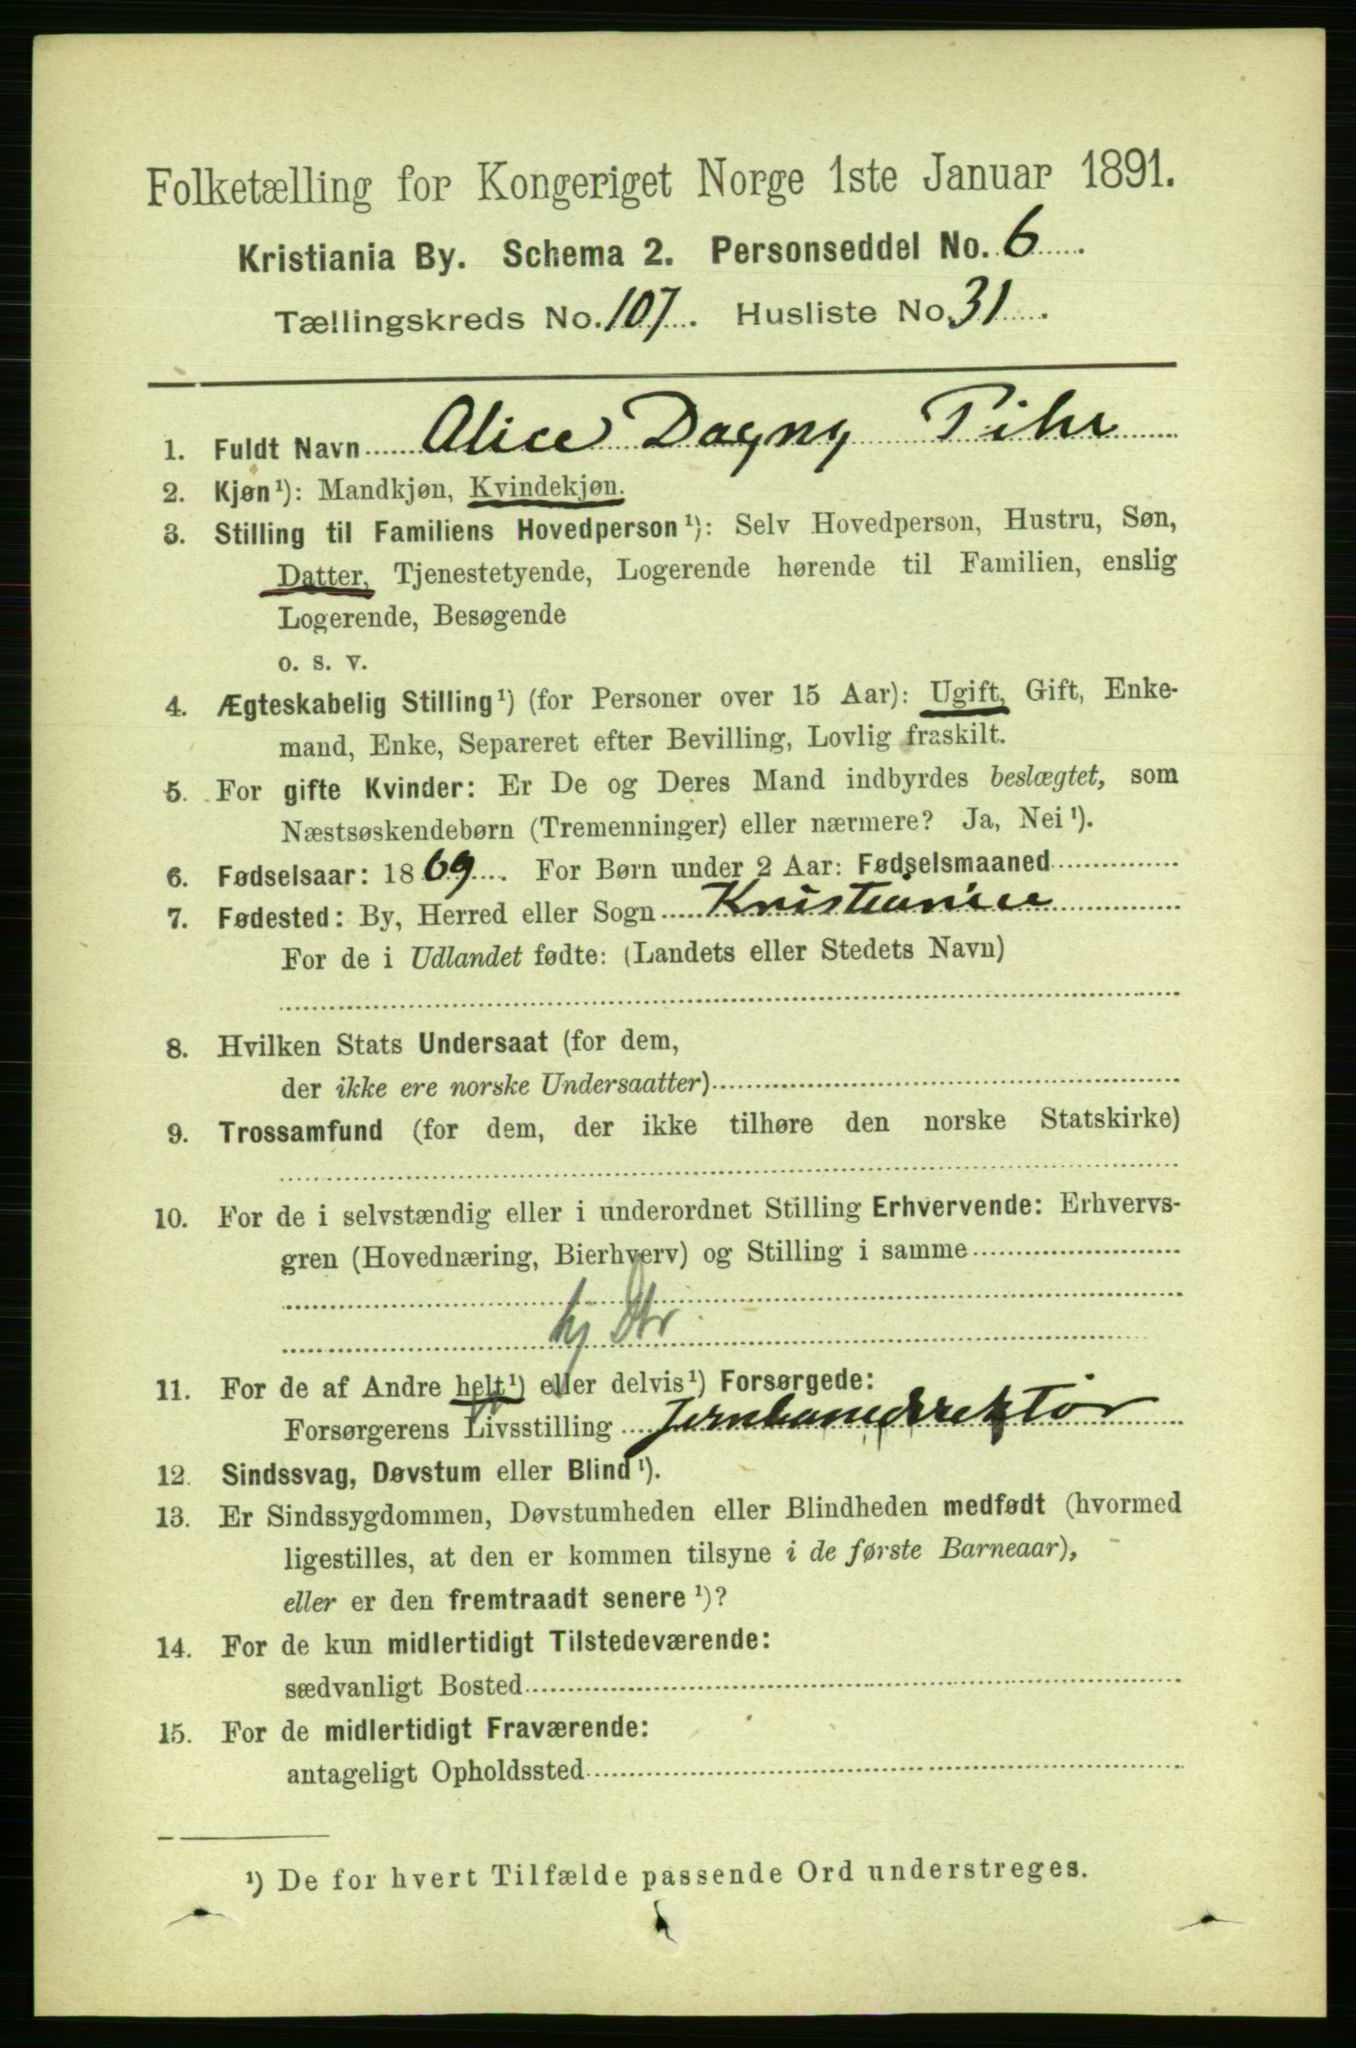 Folketælling for Kongeriget Norge 1ste Januar 1891.
Kristiania By. Schema 2. Personseddel No. 6
Tællingskreds No. 107. Husliste No. 31.
1. Fuldt Navn Alice Dagny Pihl
2. Kjøn¹): Mandkjøn, Kvindekjøn.
3. Stilling til Familiens Hovedperson¹): Selv Hovedperson, Hustru, Søn,
Datter, Tjenestetyende, Logerende hørende til Familien, enslig
Logerende, Besøgende
o. s. v.
4. Ægteskabelig Stilling¹) (for Personer over 15 Aar): Ugift, Gift, Enke-
mand, Enke, Separeret efter Bevilling, Lovlig fraskilt.
5. For gifte Kvinder: Er De og Deres Mand indbyrdes beslægtet, som
Næstsøskendebørn (Tremenninger) eller nærmere? Ja, Nei¹).
6. Fødselsaar: 1869. For Børn under 2 Aar: Fødselsmaaned
7. Fødested: By, Herred eller Sogn Kristiania
For de i Udlandet fødte: (Landets eller Stedets Navn)
8. Hvilken Stats Undersaat (for dem,
der ikke ere norske Undersaatter)
9. Trossamfund (for dem, der ikke tilhøre den norske Statskirke)
10. For de i selvstændig eller i underordnet Stilling Erhvervende: Erhvervs-
gren (Hovednæring, Bierhverv) og Stilling i samme
hj Dtr
11. For de af Andre helt¹) eller delvis¹) Forsørgede:
Forsørgerens Livsstilling Jernbanedirektør
12. Sindssvag, Døvstum eller Blind¹).
13. Er Sindssygdommen, Døvstumheden eller Blindheden medfødt (hvormed
ligestilles, at den er kommen tilsyne i de første Barneaar),
eller er den fremtraadt senere¹)?
14. For de kun midlertidigt Tilstedeværende:
sædvanligt Bosted
15. For de midlertidigt Fraværende:
antageligt Opholdssted
¹) De for hvert Tilfælde passende Ord understreges.